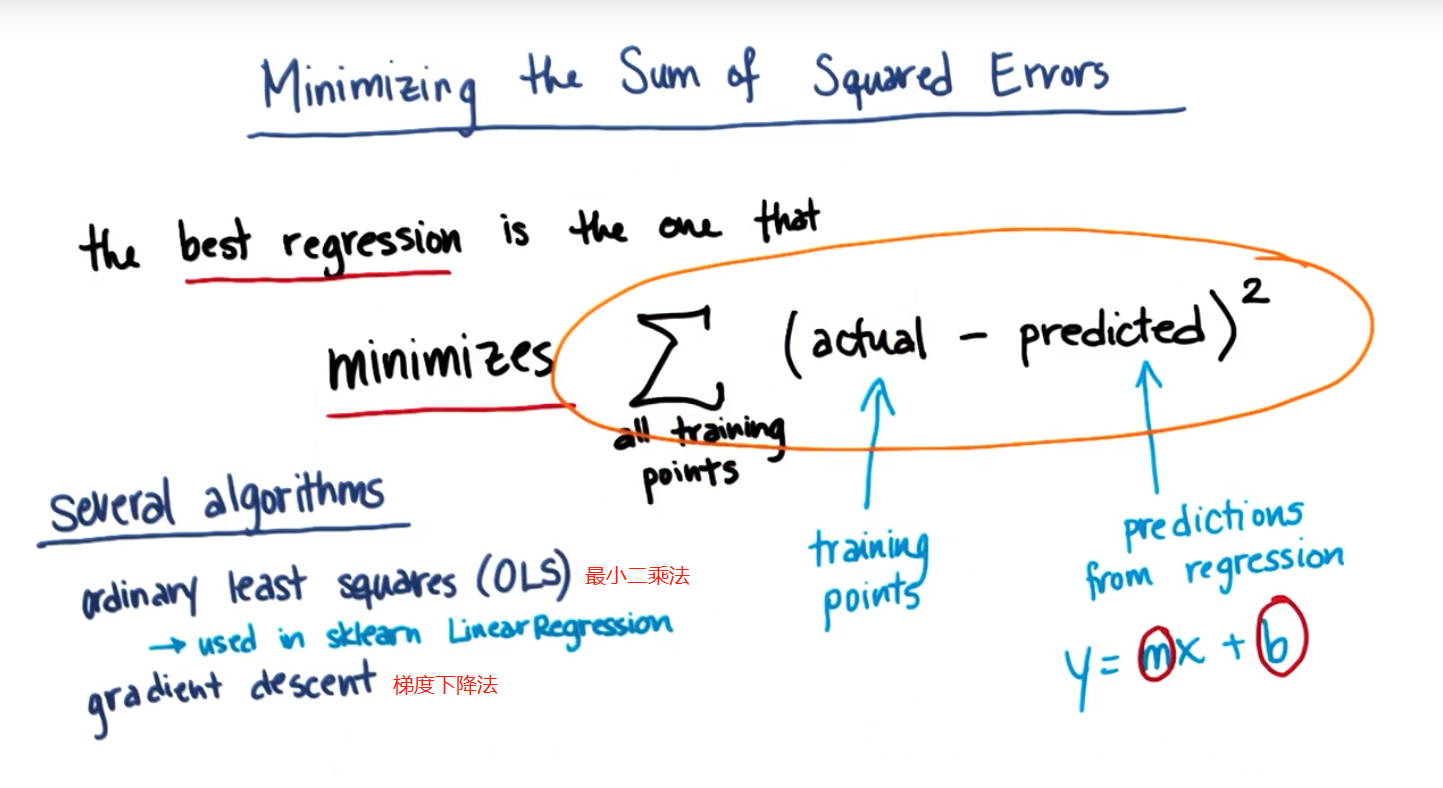 Minimizing the Sum of Squared Errors
the best regression is the one that
minimizes ∑ (actual - predicted)²
all training
points
training
points
predictions
from regression
y = mx + b
Several algorithms
ordinary least squares (OLS) 最小二乘法
→ used in sklearn LinearRegression
gradient descent 梯度下降法